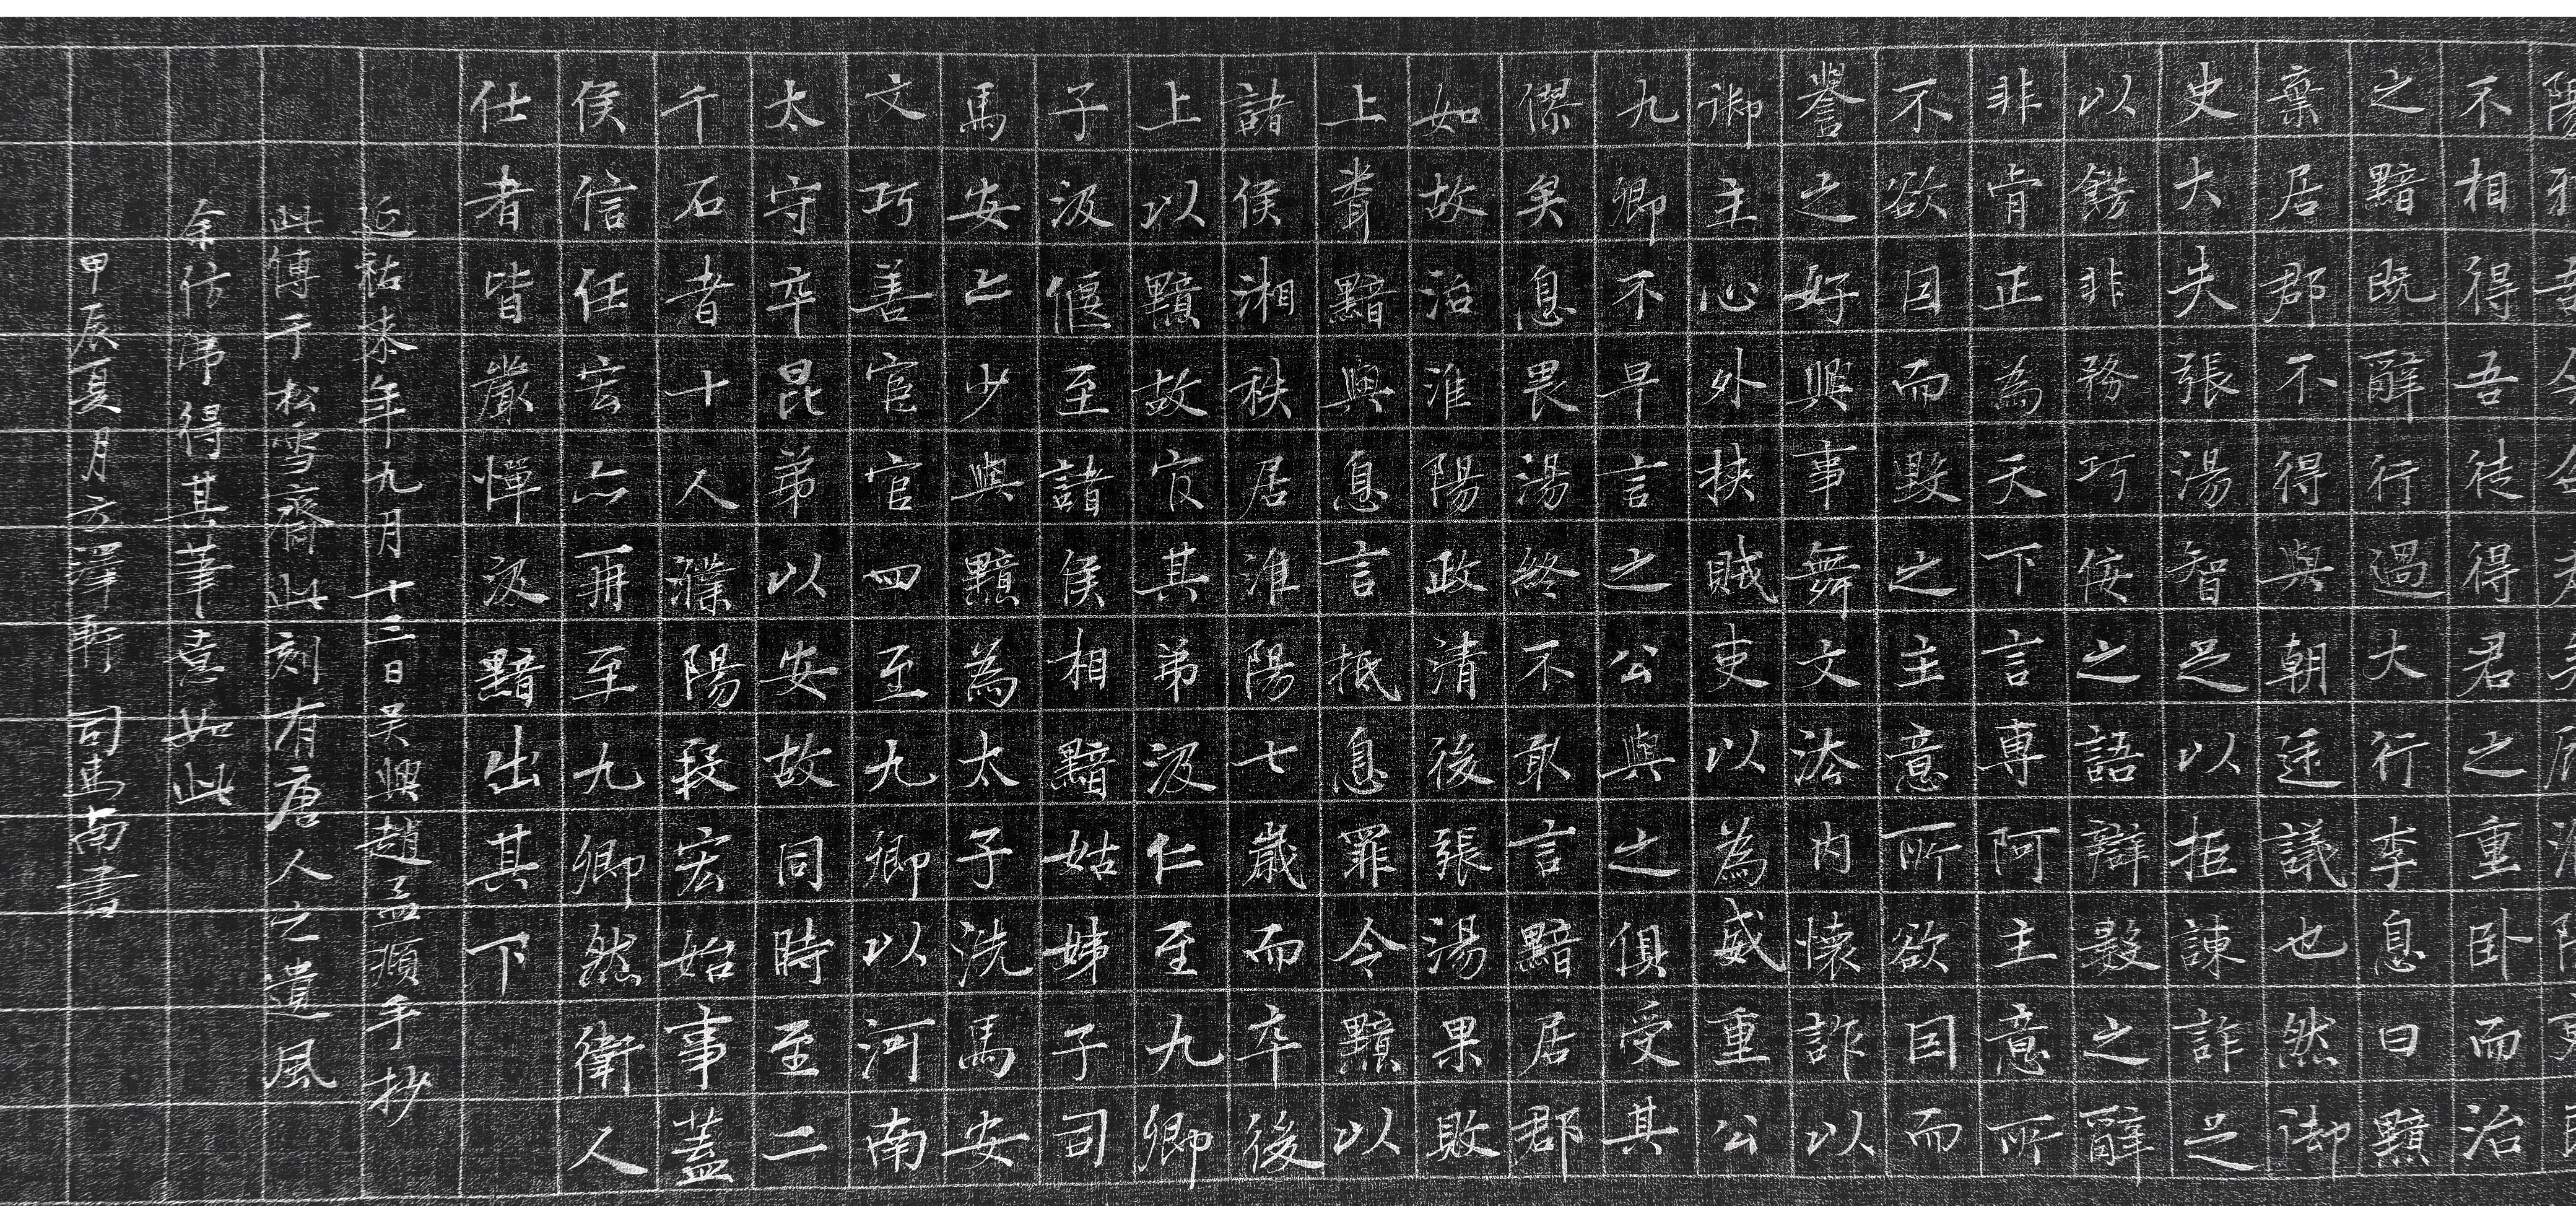 不相得吾徒得君之重臥而治
之黯既辭行過大行李息曰黯
棄居郡不得與朝廷議也然御
史大夫張湯智足以拒諫詐足
以飾非務巧佞之語辯數之辭
非肯正為天下言專阿主意所
不欲因而毀之主意所欲因而
譽之好興事舞文法內懷詐以
御主心外挾賊吏以為威重公
九卿不早言之公與之俱受其
僇矣息畏湯終不敢言黯居郡
如故治淮陽政清後張湯果敗
上聞黯與息言抵息罪令黯以
諸侯湘秩居淮陽七歲而卒後
上以黯故官其弟汲仁至九卿
子汲偃至諸侯相黯姑姊子司
馬安亦少與黯為太子洗馬安
文巧善宦官四至九卿以河南
太守卒昆弟以安故同時至二
千石者十人濮陽段宏始事蓋
侯信任宏亦再至九卿然衛人
仕者皆嚴憚汲黯出其下
延祐柒年九月十三日吳興趙孟頫手抄
此傳于松雪齋此刻有唐人之遺風
余仿佛得其筆意如此
甲辰夏月方澤軒 司馬南書